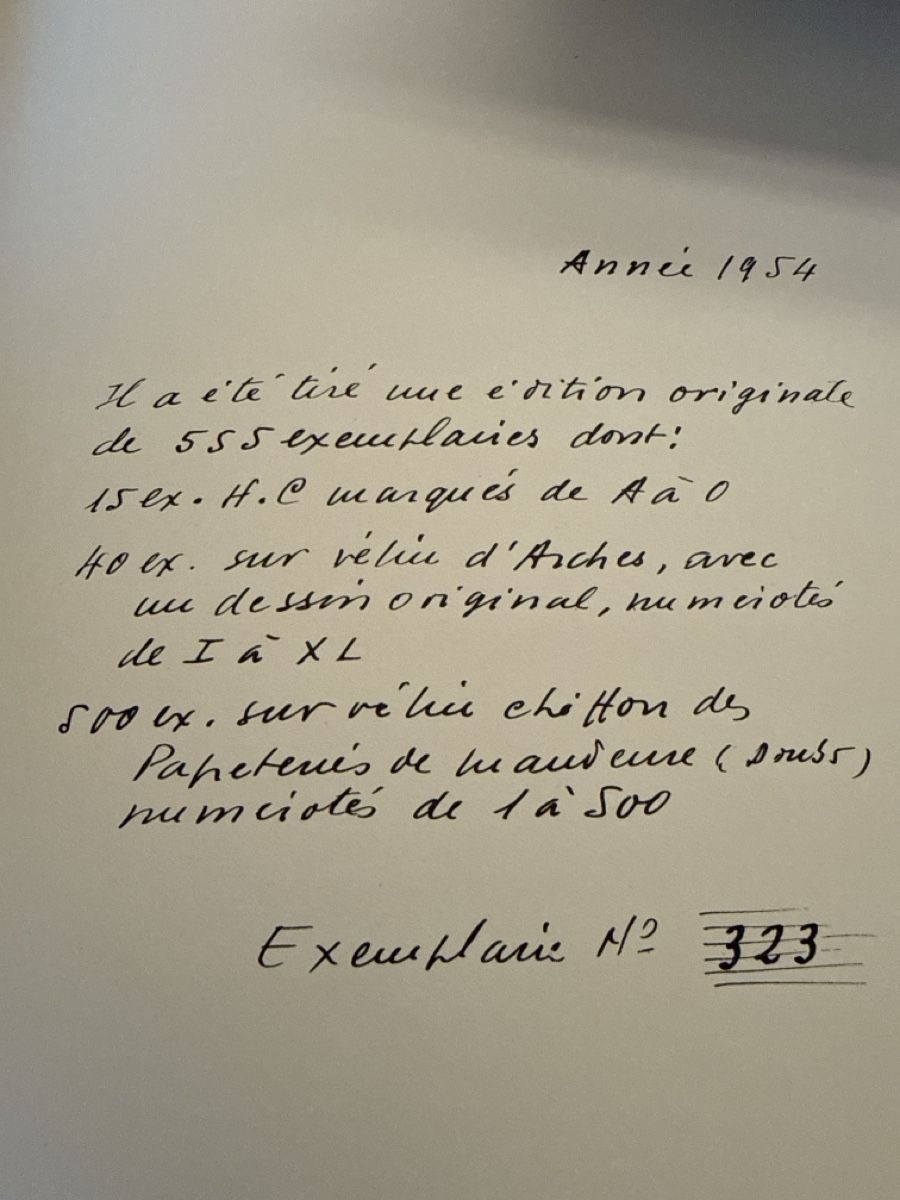 Année 1954
Il a été tiré une édition originale
de 555 exemplaires dont :
15 ex. H.C marqués de A à O
40 ex. sur vélin d'Arches, avec
un dessin original, numérotés
de I à XL
500 ex. sur vélin chiffon des
Papeteries de Mandeure (Doubs)
numérotés de 1 à 500
Exemplaire Nº 323